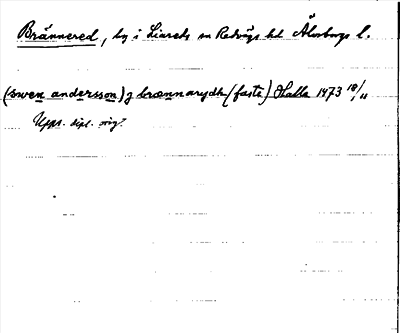 Brännered, by i Liareds sn Redvägs hd Älvsborgs l.
(swen andersson) j brænnarydh (faste) Halla 1473 18/11
Upps. dipl. orig.